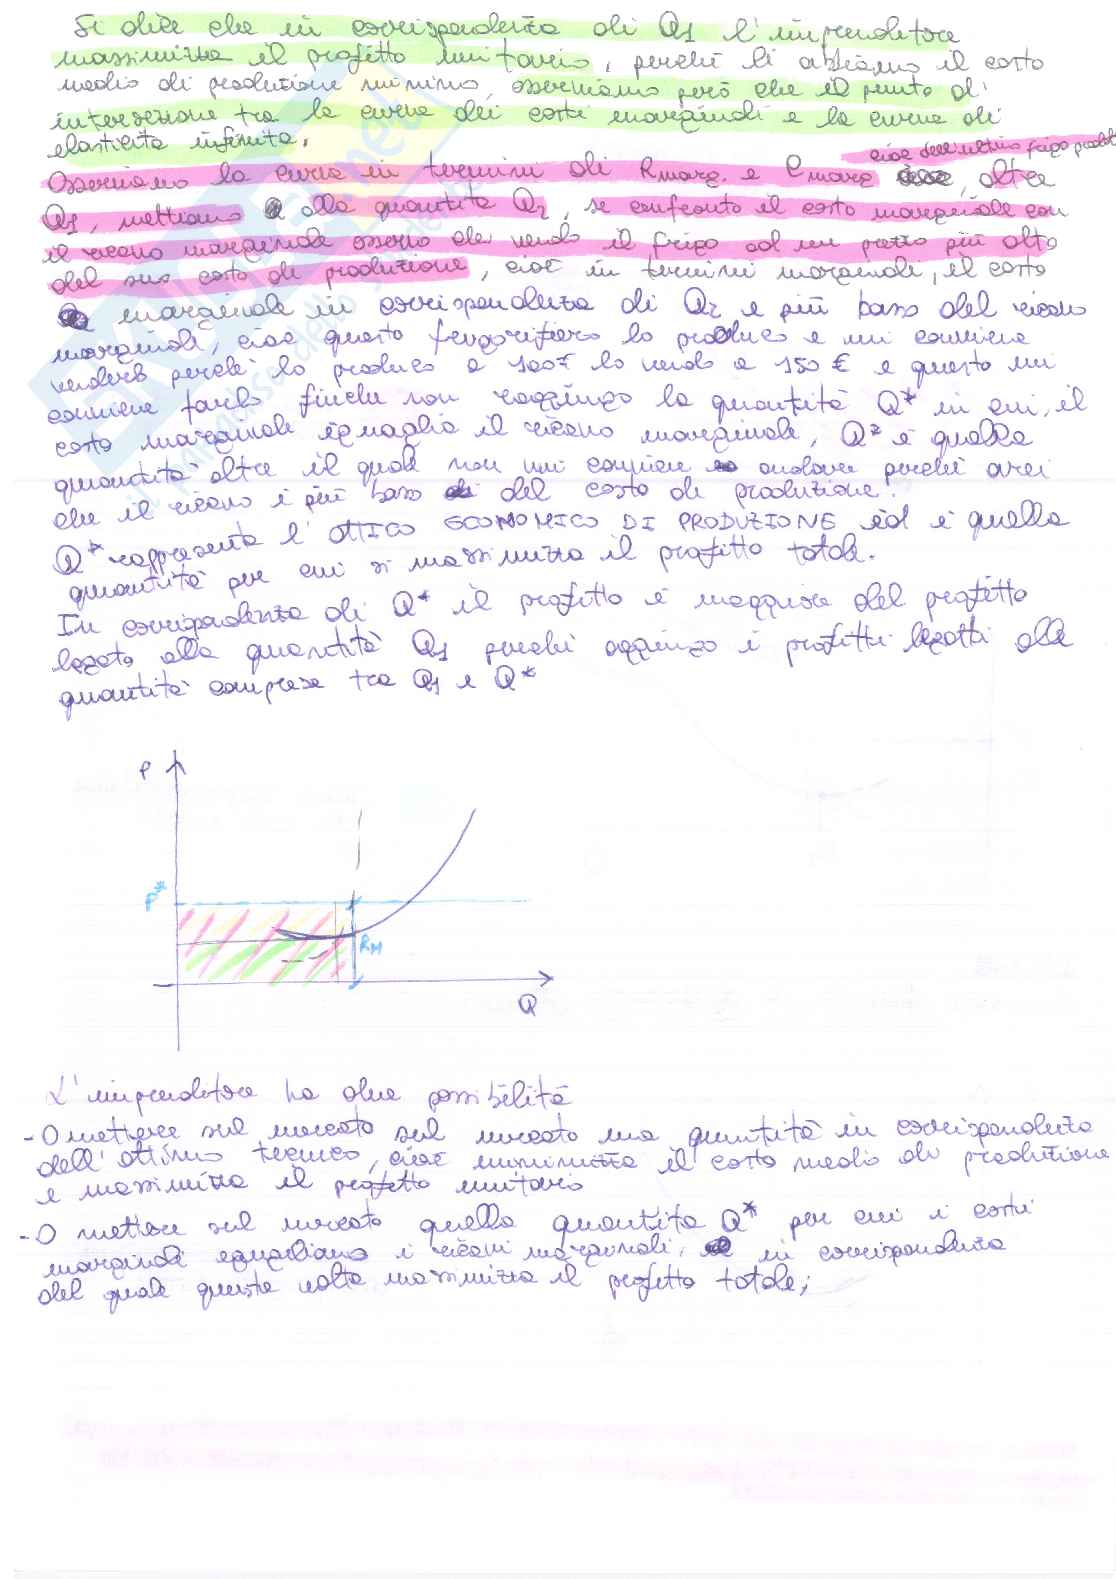 Si dice che in corrispondenza di Q1 l'imprenditore
massimizza il profitto unitario, perché lì abbiamo il costo
medio di produzione minimo, osserviamo però che il punto d'
intersezione tra la curva dei costi marginali e la curva di
elasticità infinita.
cioè dell'ultimo frigo prodotto
Osserviamo la curva in termini di Rmarg. e Cmarg, oltre
Q1, mettiamo alla quantità Q2, se confronto il costo marginale con
il ricavo marginale osservo che vendo il frigo ad un prezzo più alto
del suo costo di produzione, cioè in termini marginali, il costo
marginale in corrispondenza di Q2 è più basso del ricavo
marginale, cioè questo frigorifero lo produco e mi conviene
venderlo perché lo produco a 100€ lo vendo a 150 € e questo mi
conviene farlo finché non raggiungo la quantità Q* in cui, il
costo marginale eguaglia il ricavo marginale, Q* è quella
quantità oltre il quale non mi conviene andare perché avrei
che il ricavo è più basso del costo di produzione.
Q* rappresenta l'OTTICO ECONOMICO DI PRODUZIONE ed è quella
quantità per cui si massimizza il profitto totale.
In corrispondenza di Q* il profitto è maggiore del profitto
legato alla quantità Q1 perché aggiungo i profitti legati alle
quantità comprese tra Q1 e Q*
P
P*
RM
Q
L'imprenditore ha due possibilità
- O mettere sul mercato sul mercato una quantità in corrispondenza
dell'ottimo tecnico, cioè minimizza il costo medio di produzione
e massimizza il profitto unitario
- O mettere sul mercato quella quantità Q* per cui i costi
marginali eguagliano i ricavi marginali, in corrispondenza
del quale questa volta massimizza il profitto totale;